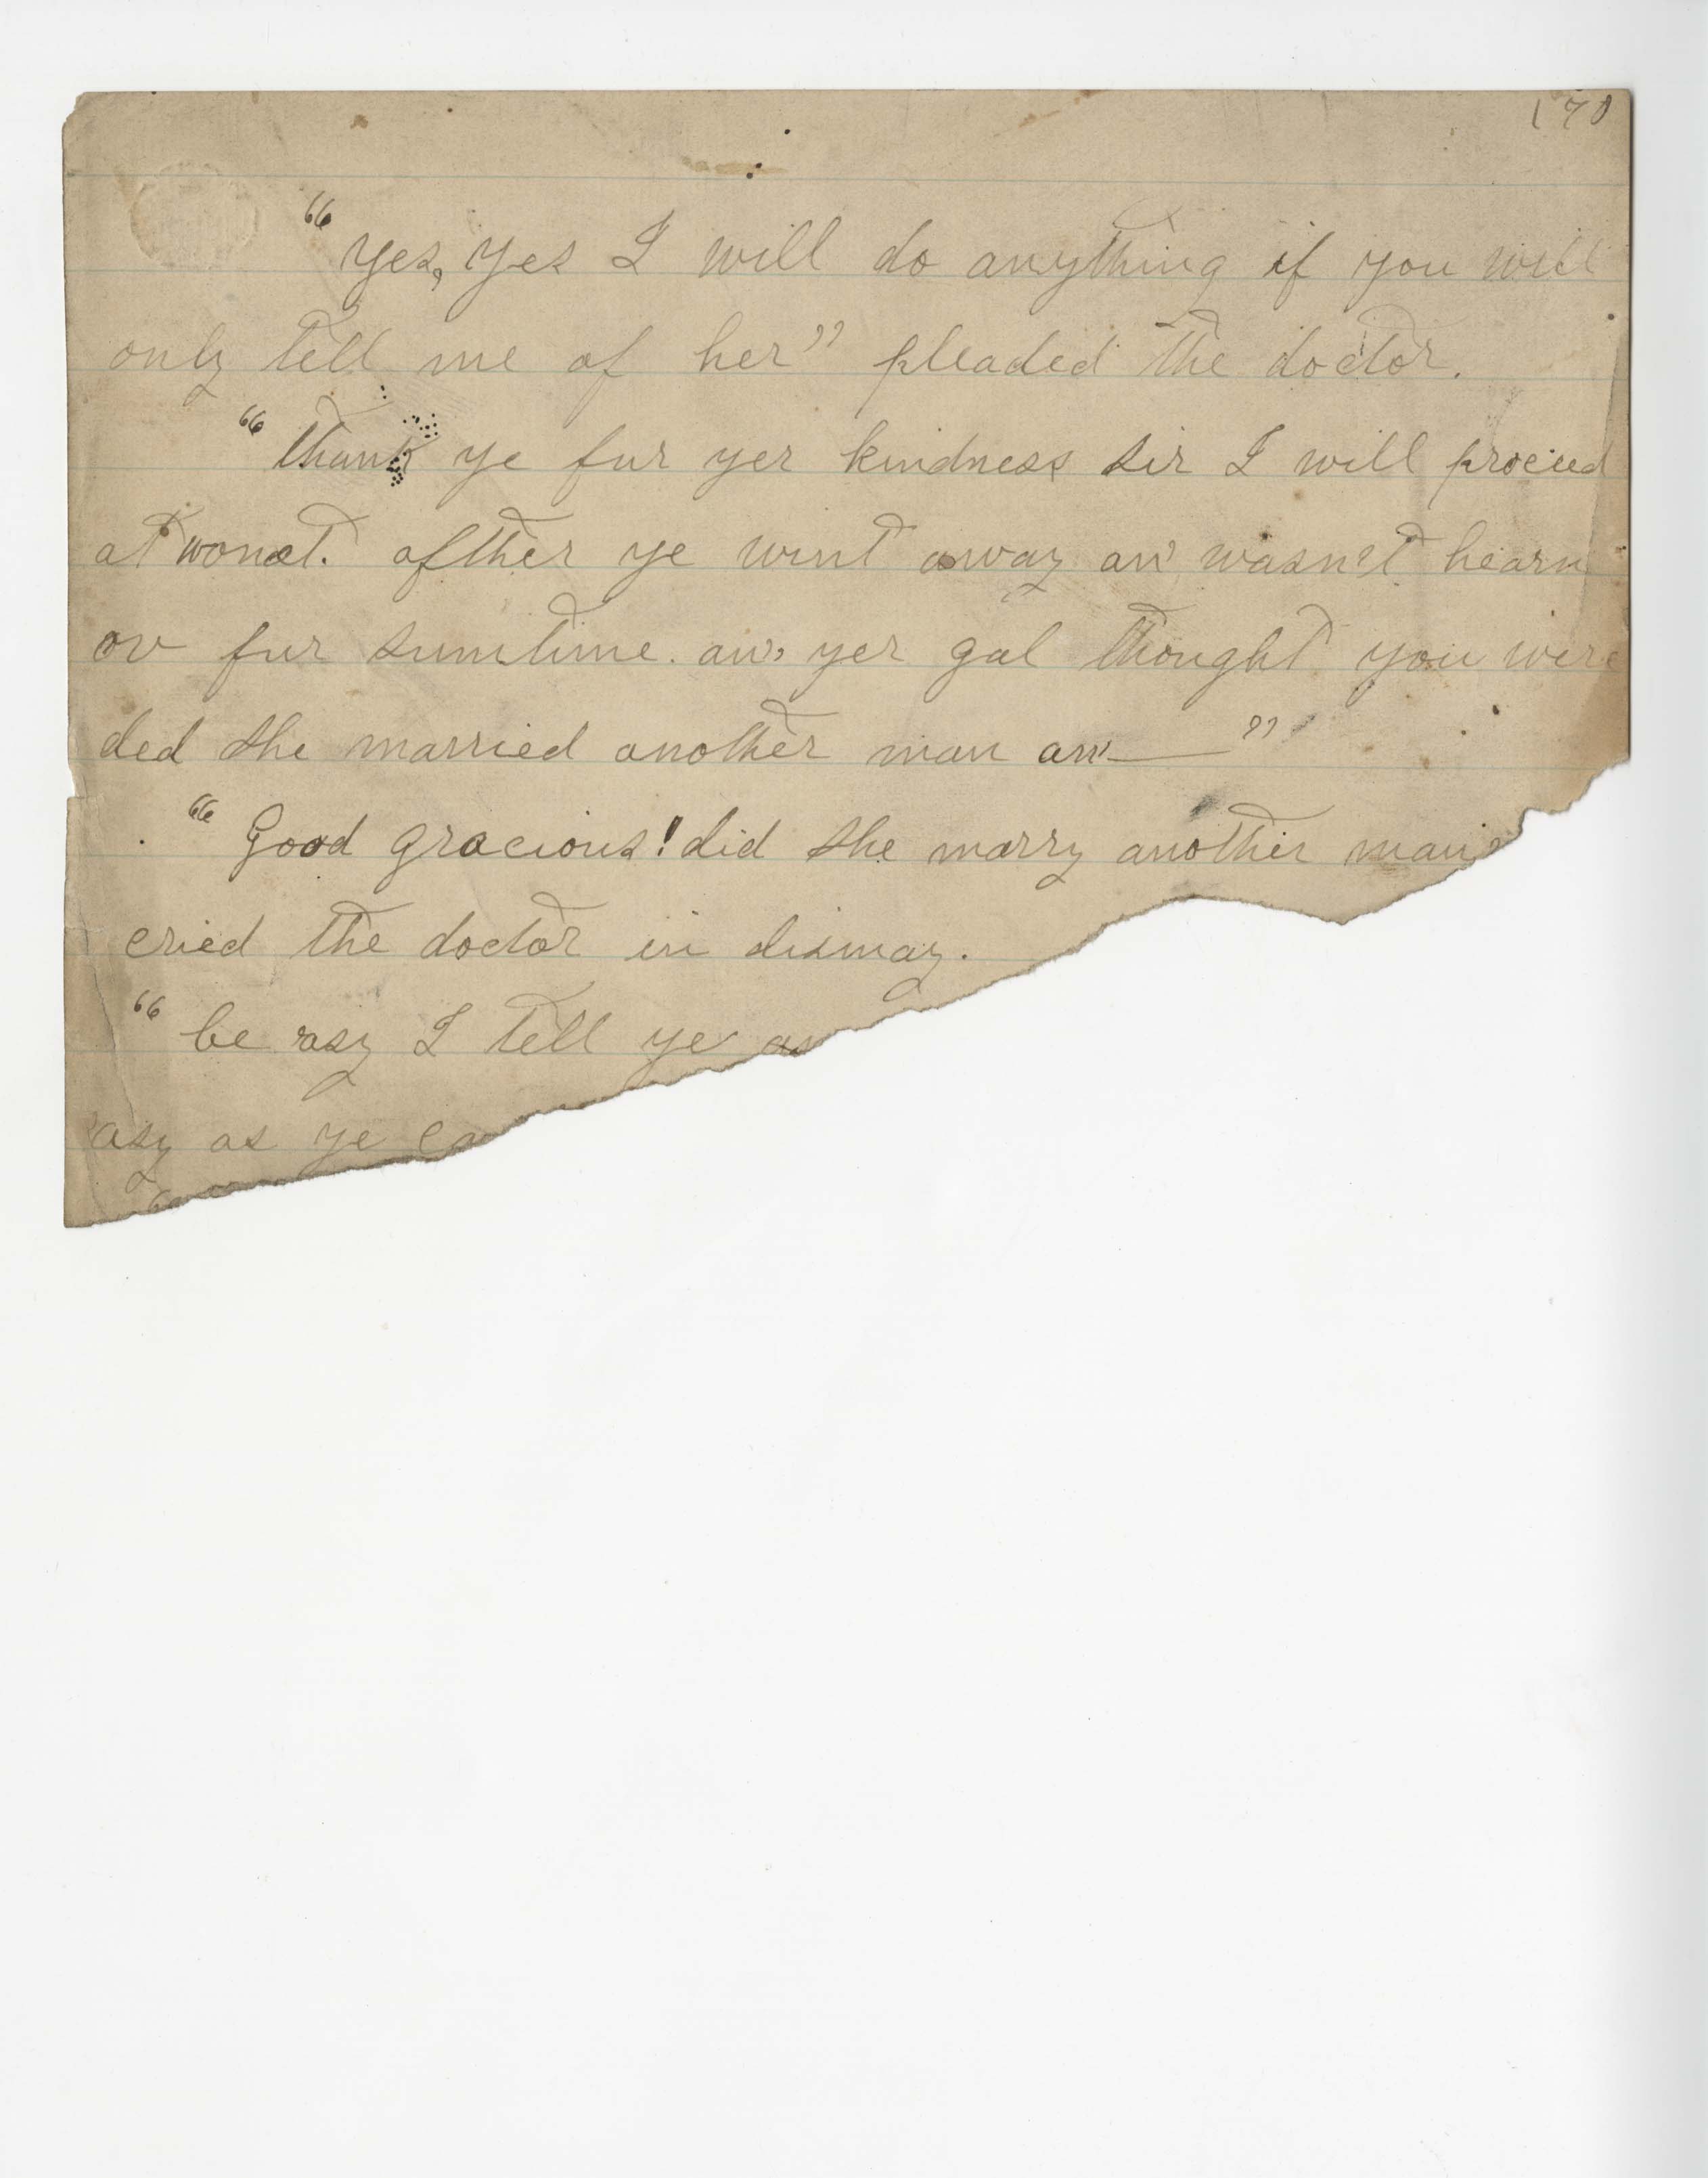 170
"Yes, Yes I will do anything if you will
only tell me of her" pleaded the doctor.
"thank ye fur yer kindness sir I will proceed
at wonct. afther ye wint away an' wasn't hearn
ov fur sumtime. an' yer gal thought you were
ded she married another man an'—"
"Good gracious! did she marry another man?
cried the doctor in dismay.
"be 'asy I tell ye as
'asy as ye ca